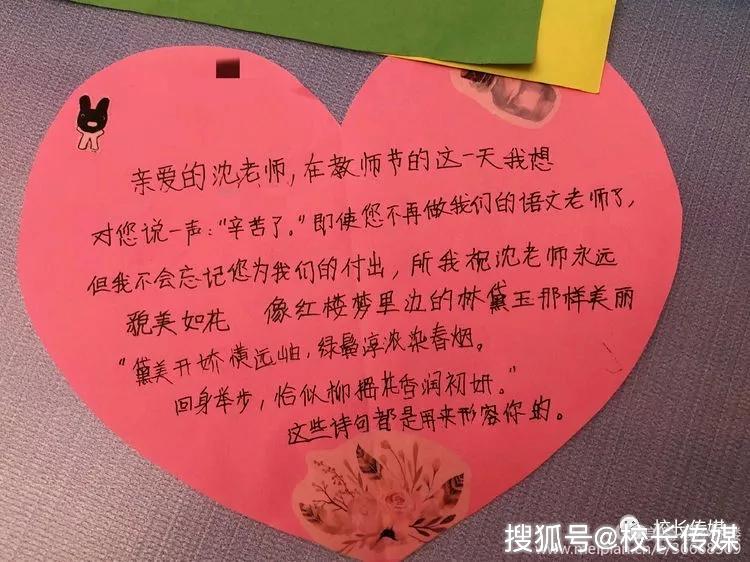 亲爱的沈老师，在教师节的这一天我想
对您说一声："辛苦了。"即使您不再做我们的语文老师了，
但我不会忘记您为我们的付出，所我祝沈老师永远
貌美如花 像红楼梦里边的林黛玉那样美丽
"黛美开娇横远岫，绿鬓淳浓染春烟。
回身举步，恰似柳摇花香润初妍。"
这些诗句都是用来形容你的。
校长传媒
搜狐号@校长传媒